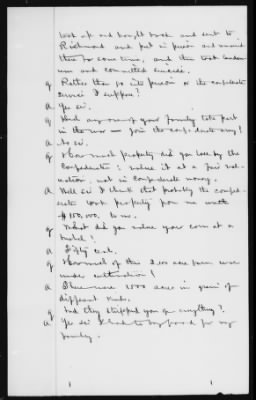 took up and bought back and sent to
Richmond and put in prison and moved
there for some time, and then took laudan-
um and committed suicide.
Q Rather than go into prison or the confederate
service I suppose?
A Yes sir.
Q Did any one of your family take part
in the war — join the confederate army?
A No sir.
Q How much property did you lose by the
Confederates: value it at a fair val-
uation, not in Confederate money.
A Well sir I think that probably the confed-
erate took property from me worth
$150,000. to me.
Q What did you value your corn at a
bushel?
A Fifty cents.
Q How much of this 2,000 acre farm was
under cultivation?
A There were 1000 acres in grain of
different kinds.
Q Had they stripped you of everything?
A Yes sir I had to buy food for my
family.